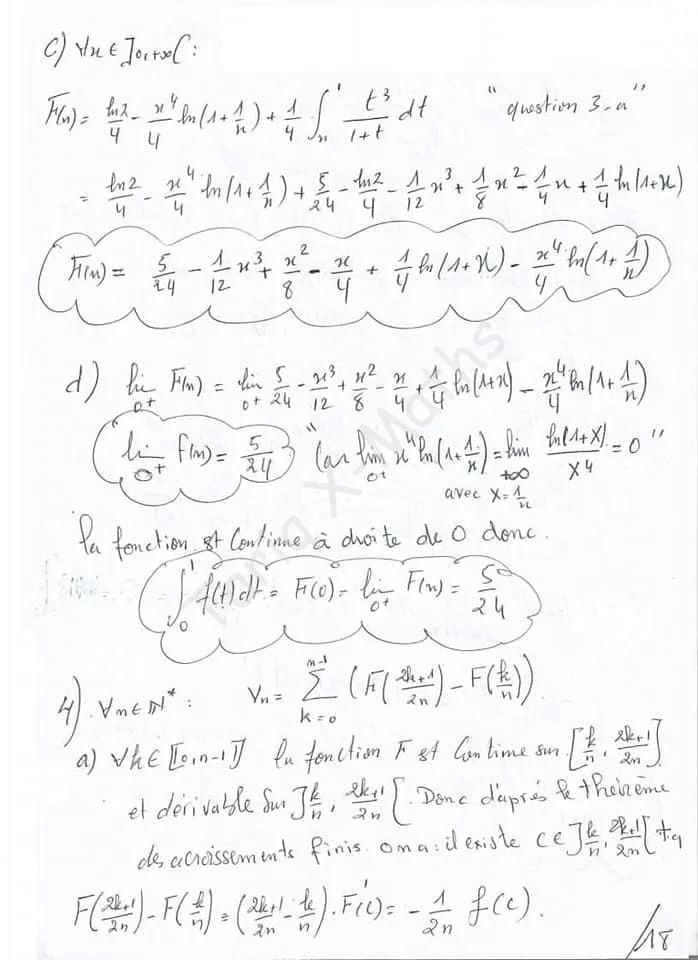 c) ∀x ∈ ]0,+∞[ :
F(x) = ln2/4 - x⁴/4 ln(1+1/x) + 1/4 ∫ₓ¹ t³/(1+t) dt "question 3-a"
= ln2/4 - x⁴/4 ln(1+1/x) + 5/24 - ln2/4 - 1/12 x³ + 1/8 x² - 1/4 x + 1/4 ln(1+x)
F(x) = 5/24 - 1/12 x³ + x²/8 - x/4 + 1/4 ln(1+x) - x⁴/4 ln(1+1/x)
d) lim 0⁺ F(x) = lim 0⁺ 5/24 - x³/12 + x²/8 - x/4 + 1/4 ln(1+x) - x⁴/4 ln(1+1/x)
lim 0⁺ F(x) = 5/24 "Car lim 0⁺ x⁴ ln(1+1/x) = lim +∞ ln(1+X)/X⁴ = 0"
avec X = 1/x
la fonction est continue à droite de 0 donc.
∫₀¹ f(t)dt = F(0) = lim 0⁺ F(x) = 5/24
4) ∀n ∈ ℕ* : Vn = Σ k=0 n-1 (F((2k+1)/2n) - F(k/n))
a) ∀k ∈ [[0, n-1]] la fonction F est continue sur [k/n, (2k+1)/2n]
et dérivable sur ]k/n, (2k+1)/2n[. Donc d'après le théorème
des acroissements finis. on a : il existe c ∈ ]k/n, (2k+1)/2n[ tq
F((2k+1)/2n) - F(k/n) = ((2k+1)/2n - k/n) . F'(c) = - 1/2n f(c).
/18
Tariq X-Maths